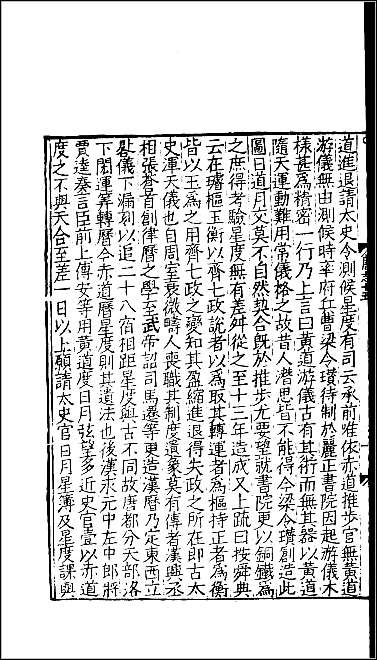 道進退請太史令測候星度有司云承前唯依赤道推步官無黃道
游儀無由測候時率府兵曹梁令瓚待制於麗正書院因起游儀木
樣甚爲精密一行乃上言曰黃道游儀古有其術而無其器以黃道
隨天運動難用常儀格之故昔人潛思皆不能得今梁令瓚創造此
圖日道月交莫不自然契合旣於推步尤要望就書院更以銅鐵爲
之庶得考驗星度無有差舛從之至十三年造成又上疏曰按舜典
云在璿樞玉衡以齊七政說者以爲取其轉運者爲樞持正者爲衡
皆以玉爲之用齊七政之變知其盈縮進退得失政之所在即古太
史渾天儀也自周室衰微疇人喪職其制度遺象莫有傳者漢興丞
相張蒼首創律曆之學至武帝詔司馬遷等更造漢曆乃定東西立
晷儀下漏刻以追二十八宿相距星度與古不同故唐都分天部洛
下閎運算轉曆今赤道曆星度則其遺法也後漢永元中左中郎將
賈逵奏言臣前上傅安等用黃道度日月弦望多近史官壹以赤道
度之不與天合至差一日以上願請太史官日月星簿及星度課與